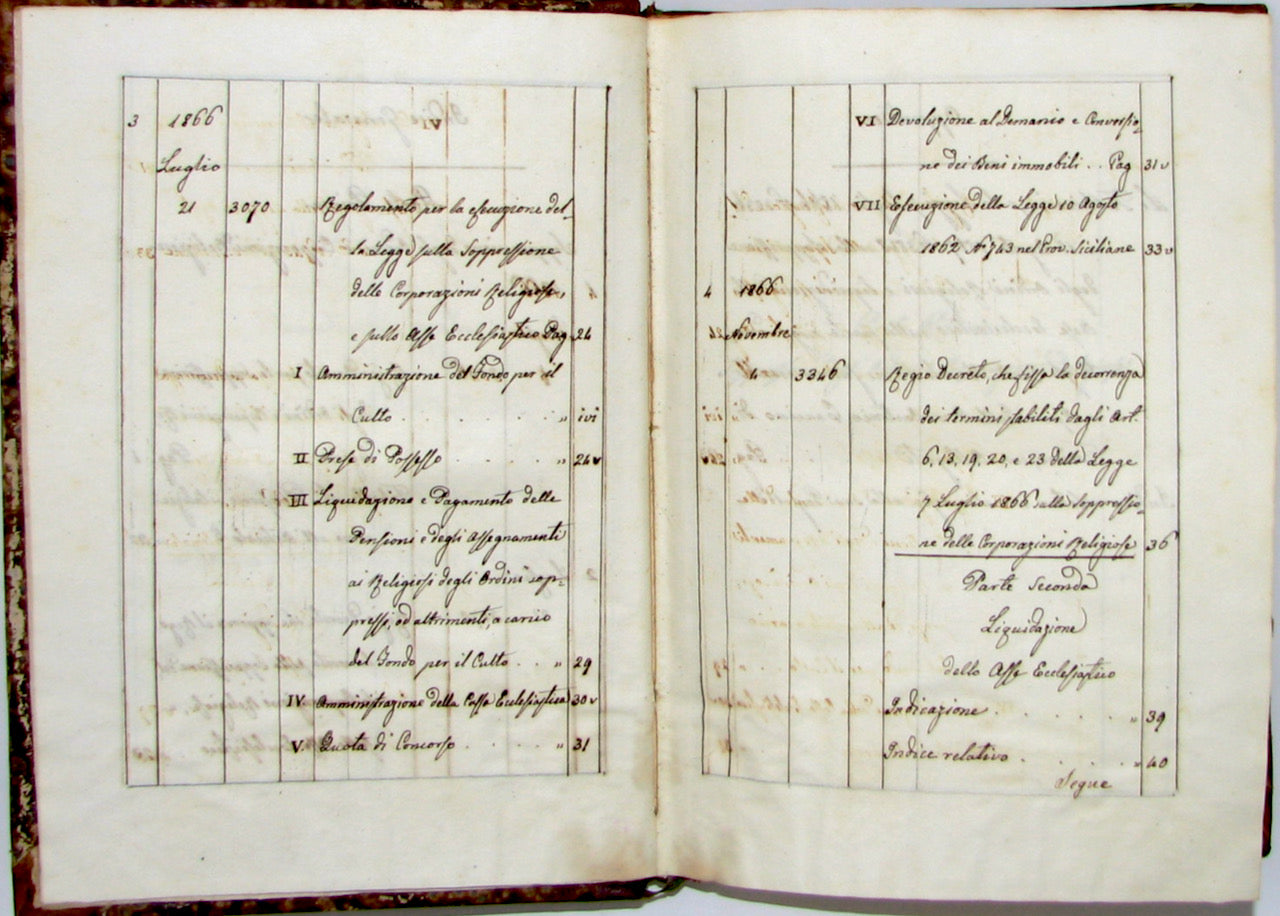 3 1866 IV
Luglio
21 3070 Regolamento per la esecuzione del_
la Legge sulla Soppressione
delle Corporazioni Religiose,
e sullo Asse Ecclesiastico Pag 24
I Amministrazione del Fondo per il
Culto . . . . . " ivi
II Presa di Possesso . . . . . " 24v
III Liquidazione e Pagamento delle
Pensioni e degli Assegnamenti
ai Religiosi degli Ordini sop-
pressi, od altrimenti, a carico
del Fondo per il Culto . . " 29
IV. Amministrazione della Cassa Ecclesiastica 30v
V. Quota di Concorso . . . . " 31
VI Devoluzione al Demanio e Conversio_
ne dei Beni immobili . . Pag 31v
VII Esecuzione della Legge 10 Agosto
1862 N° 743 nel Prov. Siciliane 33v
4 1866
Novembre
4 3346 Regio Decreto, che fissa la decorrenza
dei termini stabiliti dagli Art.
6, 13, 19, 20, e 23 della Legge
7 Luglio 1866 sulla soppressio_
ne delle Corporazioni Religiose 36
Parte Seconda
Liquidazione
dello Asse Ecclesiastico
Indicazione . . . . . " 39
Indice relativo . . . . . " 40
Segue